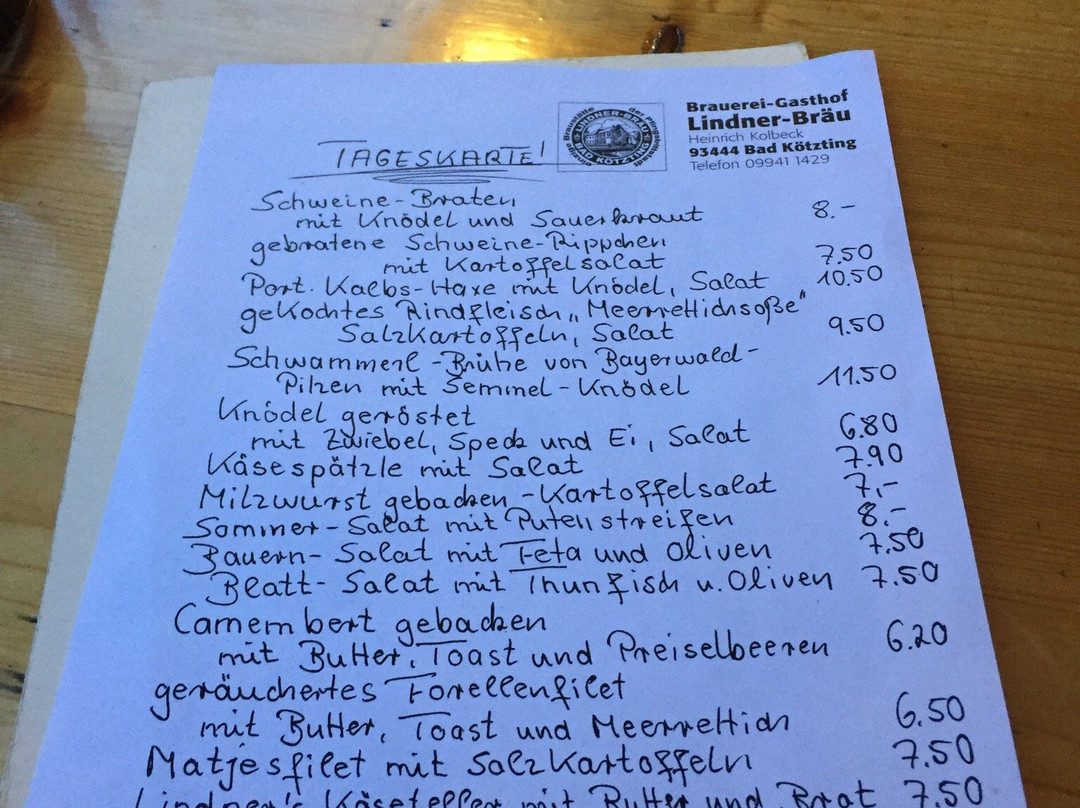 Brauerei-Gasthof
Lindner-Bräu
Heinrich Kolbeck
93444 Bad Kötzting
Telefon 09941 1429
LINDNER-BRÄU
BAD KÖTZTING
TAGESKARTE!
Schweine-Braten
mit Knödel und Sauerkraut 8.-
gebratene Schweine-Rippchen
mit Kartoffelsalat 7.50
Port. Kalbs-Haxe mit Knödel, Salat 10.50
gekochtes Rindfleisch „Meerrettichsoße"
Salzkartoffeln, Salat 9.50
Schwammerl-Brühe von Bayerwald-
Pilzen mit Semmel-Knödel 11.50
Knödel geröstet
mit Zwiebel, Speck und Ei, Salat 6.80
Käsespätzle mit Salat 7.90
Milzwurst gebacken-Kartoffelsalat 7,-
Sommer-Salat mit Putenstreifen 8.-
Bauern-Salat mit Feta und Oliven 7.50
Blatt-Salat mit Thunfisch u. Oliven 7.50
Camembert gebacken
mit Butter, Toast und Preiselbeeren 6.20
geräuchertes Forellenfilet
mit Butter, Toast und Meerrettich 6.50
Matjesfilet mit Salzkartoffeln 7.50
Lindner's Käseteller mit Butter und Brot 7.50